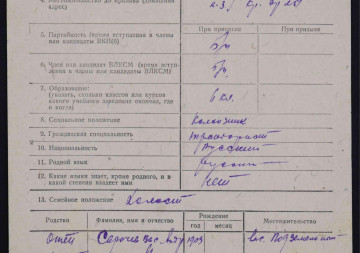 адрес)
При приписке При призыве
5. Партийность (время вступления в члены
или кандидаты ВКП(б) б/п
6. Член или кандидат ВЛКСМ (время всту-
пления в члены или кандидаты ВЛКСМ)
7. Образование:
(указать, сколько классов или курсов
какого учебного заведения окончил, где
и когда) 6 кл.
8. Социальное положение Колхозник
9. Гражданская специальность тракторист
10. Национальность Русский
11. Родной язык русский
12. Какие языки знает, кроме родного, и в
какой степени владеет ими нет
13. Семейное положение Холост
Родство Фамилия, имя и отчество Рождение Местожительство
год месяц
Отец 1903